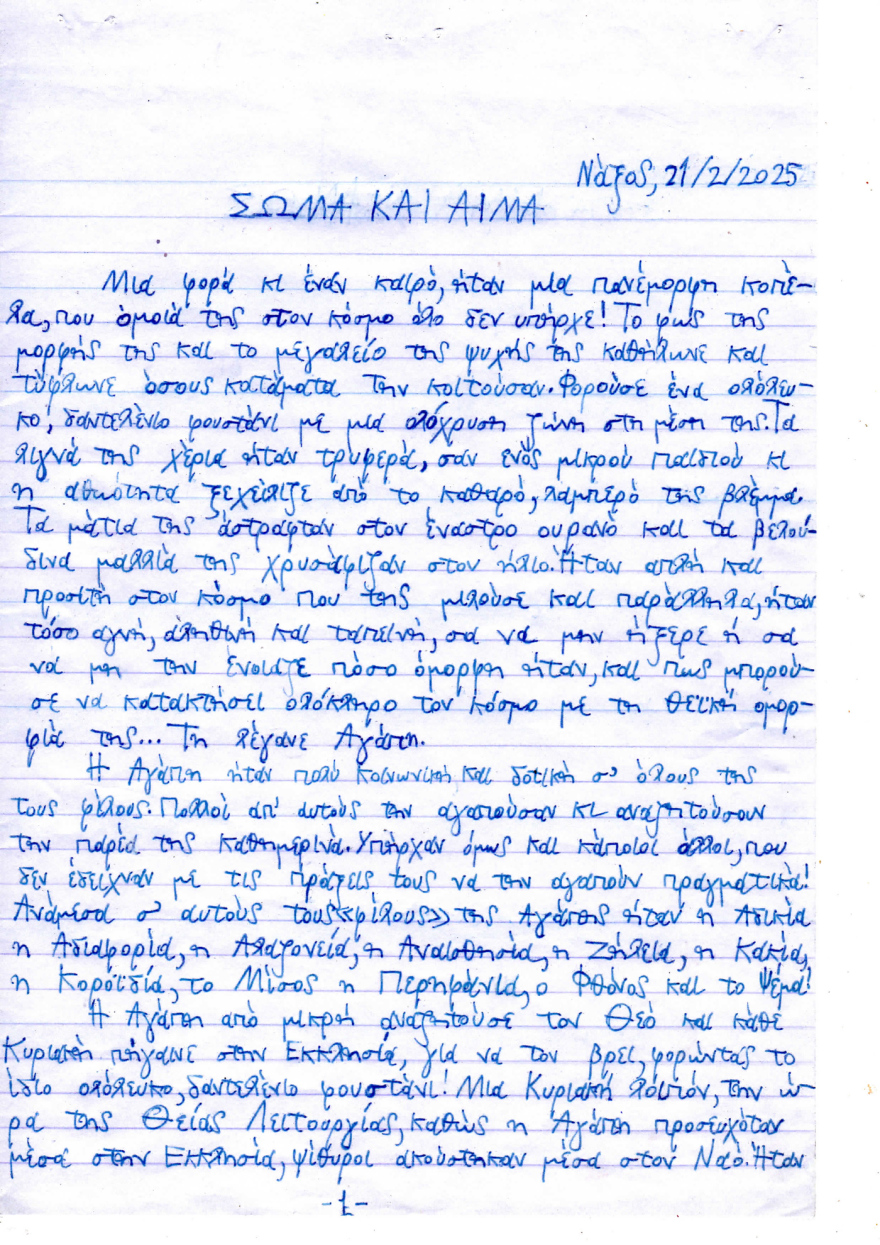 Νάξος, 21/2/2025
ΣΩΜΑ ΚΑΙ ΑΙΜΑ
Μια φορά κι έναν καιρό, ήταν μια πανέμορφη κοπέ-
λα, που όμοιά της στον κόσμο όλο δεν υπήρχε! Το φως της
μορφής της και το μεγαλείο της ψυχής της καθήλωνε και
τύφλωνε όσους κατάματα την κοιτούσαν. Φορούσε ένα ολόλευ-
κο, δαντελένιο φουστάνι με μια ολόχρυση ζώνη στη μέση της. Τα
λιγνά της χέρια ήταν τρυφερά, σαν ενός μικρού παιδιού κι
η αθωότητα ξεχείλιζε από το καθαρό, λαμπερό της βλέμμα.
Τα μάτια της άστραφταν στον έναστρο ουρανό και τα βελού-
δινα μαλλιά της χρυσάφιζαν στον ήλιο. Ήταν απλή και
προσιτή στον κόσμο που της μιλούσε και παράλληλα, ήταν
τόσο αγνή, αληθινή και ταπεινή, σα να μην ήξερε ή σα
να μη την ένοιαζε πόσο όμορφη ήταν, και πως μπορού-
σε να κατακτήσει ολόκληρο τον κόσμο με τη θεϊκή ομορ-
φιά της... Τη λέγανε Αγάπη.
Η Αγάπη ήταν πολύ κοινωνική και δοτική σ' όλους της
τους φίλους. Πολλοί απ' αυτούς την αγαπούσαν κι αναζητούσαν
την παρέα της καθημερινά. Υπήρχαν όμως και κάποιοι άλλοι, που
δεν έδειχναν με τις πράξεις τους να την αγαπούν πραγματικά!
Ανάμεσα σ' αυτούς τους «φίλους» της Αγάπης ήταν η Αδικία
η Αδιαφορία, η Αλαζονεία, η Αναισθησία, η Ζήλεια, η Κακία,
η Κοροϊδία, το Μίσος η Περηφάνια, ο Φθόνος και το Ψέμα!
Η Αγάπη από μικρή αναζητούσε τον Θεό και κάθε
Κυριακή πήγαινε στην Εκκλησία, για να τον βρει, φορώντας το
ίδιο ολόλευκο, δαντελένιο φουστάνι! Μια Κυριακή λοιπόν, την ώ-
ρα της Θείας Λειτουργίας, καθώς η Αγάπη προσευχόταν
μέσα στην Εκκλησία, ψίθυροι ακούστηκαν μέσα στον Ναό. Ήταν
-1-